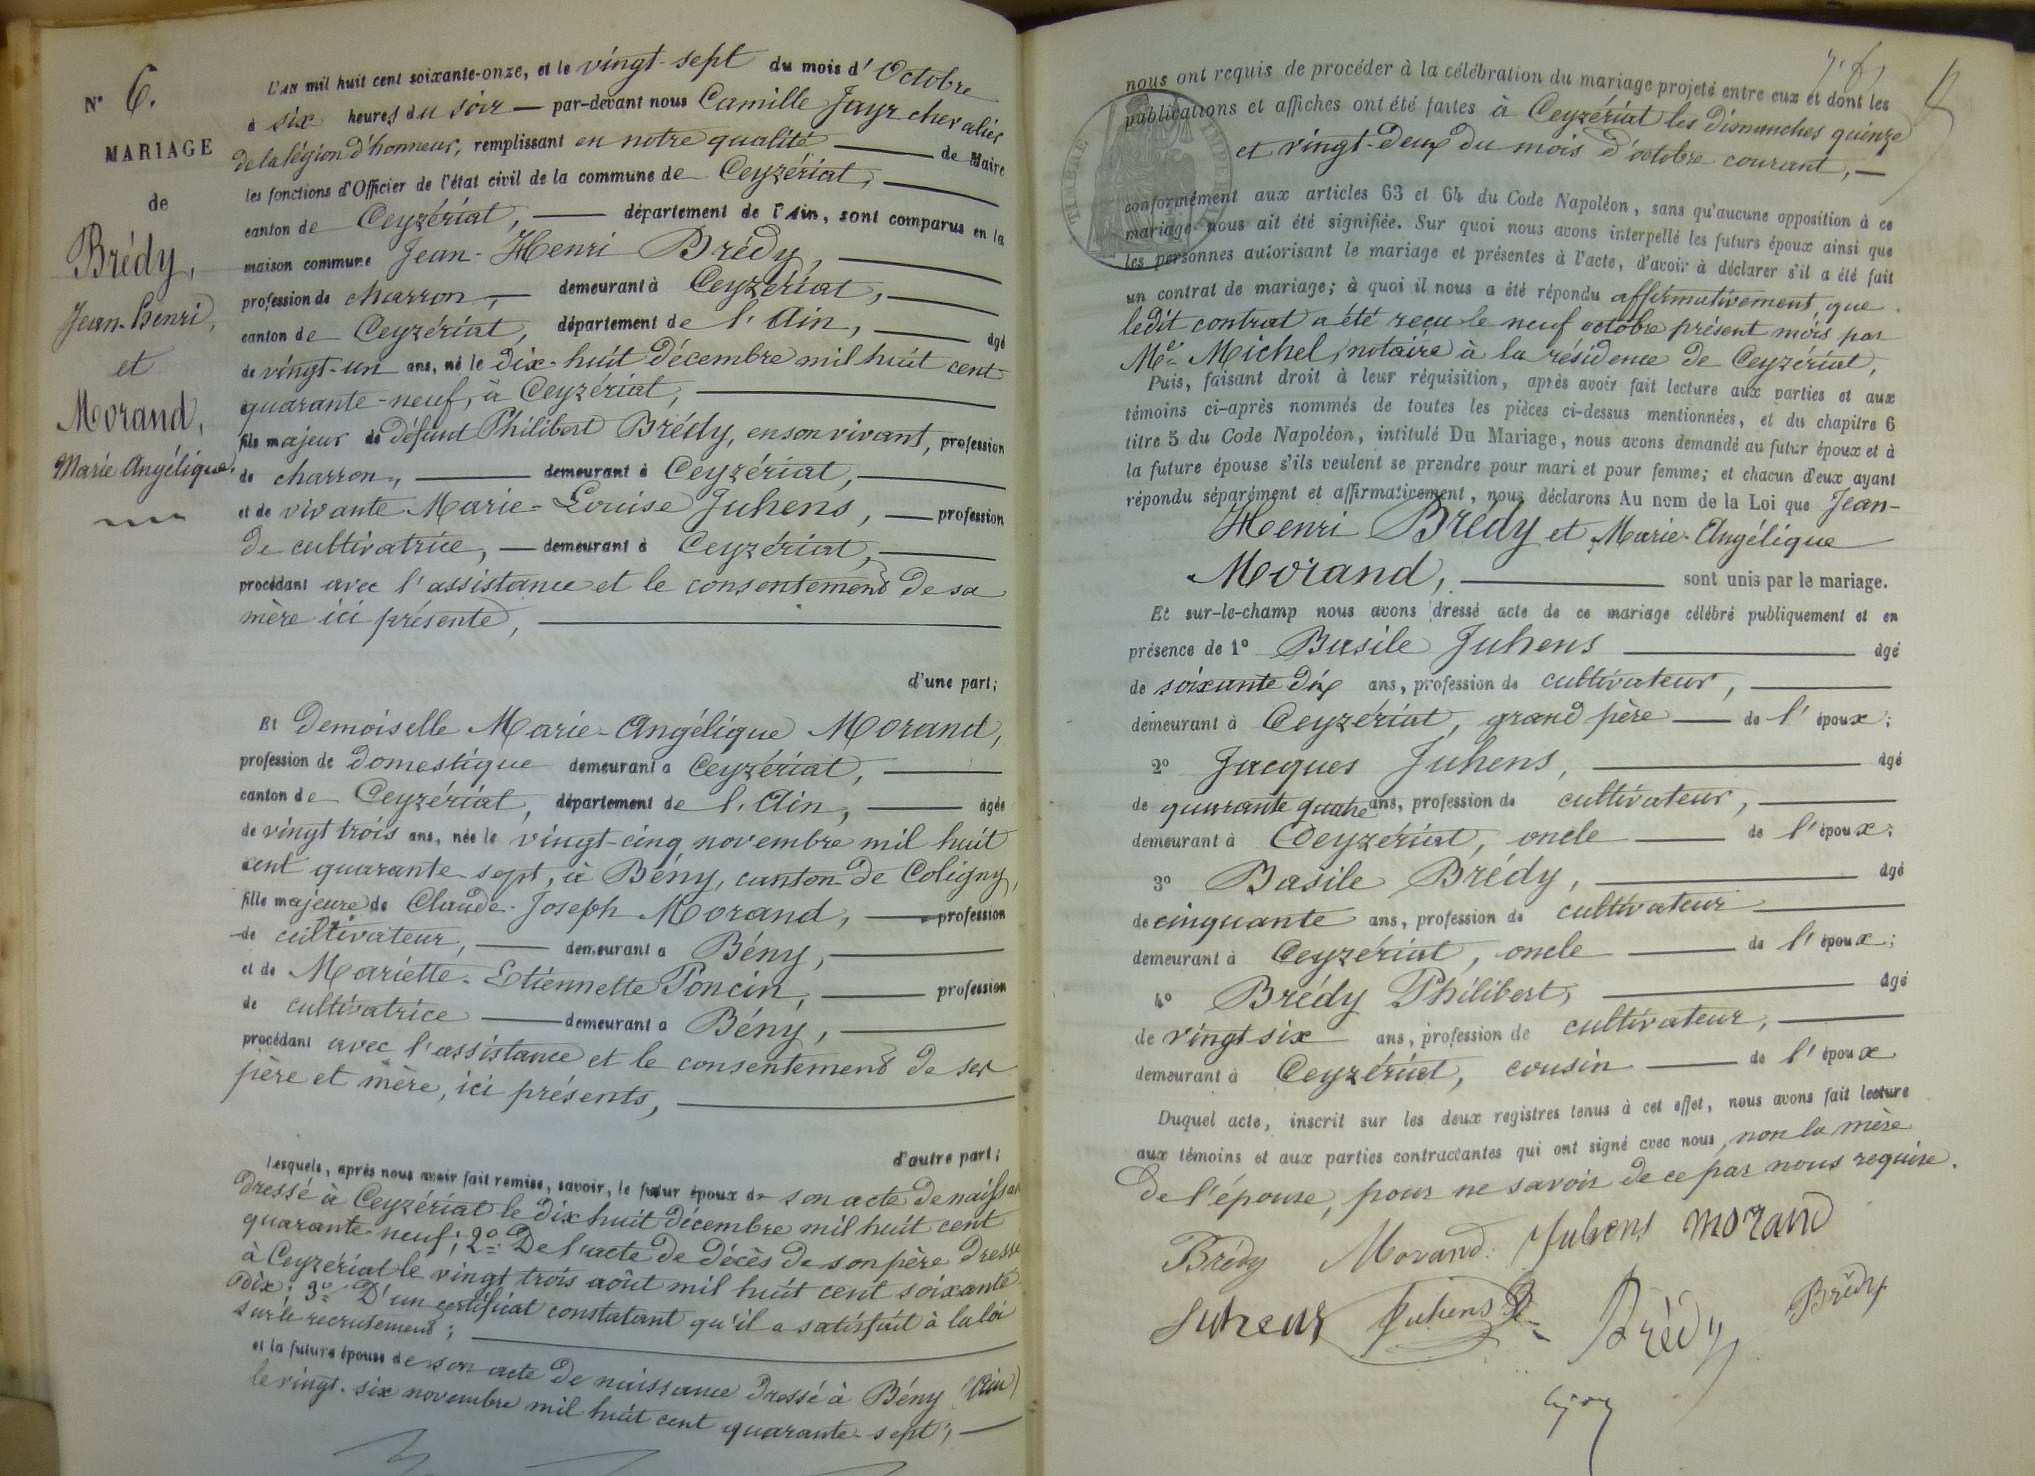 N° 6.
MARIAGE
de
Brédy,
Jean-Henri,
et
Morand,
Marie Angélique.
L'an mil huit cent soixante-onze, et le vingt-sept du mois d'Octobre
à six heures du soir — par-devant nous Camille Jayr chevalier
de la légion d'honneur, remplissant en notre qualité — de Maire
les fonctions d'Officier de l'état civil de la commune de Ceyzériat, —
canton de Ceyzériat, — département de l'Ain, sont comparus en la
maison commune Jean-Henri Brédy, —
profession de charron, — demeurant à Ceyzériat, —
canton de Ceyzériat, département de l'Ain, — âgé
de vingt-un ans, né le dix-huit décembre mil huit cent
quarante-neuf, à Ceyzériat, —
fils majeur de défunt Philibert Brédy, en son vivant, profession
de charron, — demeurant à Ceyzériat, —
et de vivante Marie-Louise Juhens, — profession
de cultivatrice, — demeurant à Ceyzériat, —
procédant avec l'assistance et le consentement de sa
mère ici présente, —
d'une part;
Et Demoiselle Marie-Angélique Morand,
profession de domestique demeurant à Ceyzériat, —
canton de Ceyzériat, département de l'Ain, — âgée
de vingt trois ans, née le vingt-cinq novembre mil huit
cent quarante-sept, à Bény, canton de Coligny,
fille majeure de Claude-Joseph Morand, — profession
de cultivateur, — demeurant à Bény, —
et de Mariette-Etiennette Poncin, — profession
de cultivatrice — demeurant à Bény, —
procédant avec l'assistance et le consentement de ses
père et mère, ici présents, —
d'autre part;
Lesquels, après nous avoir fait remise, savoir, le futur époux de son acte de naissan
dressé à Ceyzériat le dix huit décembre mil huit cent
quarante neuf; 2° De l'acte de décès de son père dressé
à Ceyzériat le vingt trois août mil huit cent soixante
dix; 3° D'un certificat constatant qu'il a satisfait à la loi
sur le recrutement; —
et la future épouse de son acte de naissance dressé à Bény (Ain)
le vingt-six novembre mil huit cent quarante-sept; —
nous ont requis de procéder à la célébration du mariage projeté entre eux et dont les
publications et affiches ont été faites à Ceyzériat les dimanches quinze
et vingt-deux du mois d'octobre courant, —
conformément aux articles 63 et 64 du Code Napoléon, sans qu'aucune opposition à ce
mariage nous ait été signifiée. Sur quoi nous avons interpellé les futurs époux ainsi que
les personnes autorisant le mariage et présentes à l'acte, d'avoir à déclarer s'il a été fait
un contrat de mariage; à quoi il nous a été répondu affirmativement, que
ledit contrat a été reçu le neuf octobre présent mois par
Me Michel, notaire à la résidence de Ceyzériat,
Puis, faisant droit à leur réquisition, après avoir fait lecture aux parties et aux
témoins ci-après nommés de toutes les pièces ci-dessus mentionnées, et du chapitre 6
titre 5 du Code Napoléon, intitulé Du Mariage, nous avons demandé au futur époux et à
la future épouse s'ils veulent se prendre pour mari et pour femme; et chacun d'eux ayant
répondu séparément et affirmativement, nous déclarons Au nom de la Loi que Jean-
Henri Brédy et Marie-Angélique
Morand, — sont unis par le mariage.
Et sur-le-champ nous avons dressé acte de ce mariage célébré publiquement et en
présence de 1° Basile Juhens — âgé
de soixante dix ans, profession de cultivateur, —
demeurant à Ceyzériat, grand père — de l'époux;
2° Jacques Juhens, — âgé
de quarante quatre ans, profession de cultivateur, —
demeurant à Ceyzériat, oncle — de l'époux;
3° Basile Brédy, — âgé
de cinquante ans, profession de cultivateur —
demeurant à Ceyzériat, oncle — de l'époux;
4° Brédy Philibert, — âgé
de vingt six ans, profession de cultivateur, —
demeurant à Ceyzériat, cousin — de l'époux
Duquel acte, inscrit sur les deux registres tenus à cet effet, nous avons fait lecture
aux témoins et aux parties contractantes qui ont signé avec nous, non la mère
de l'épouse, pour ne savoir de ce par nous requise.
Brédy Morand Juhens Morand
Juhens Juhens Brédy Brédy